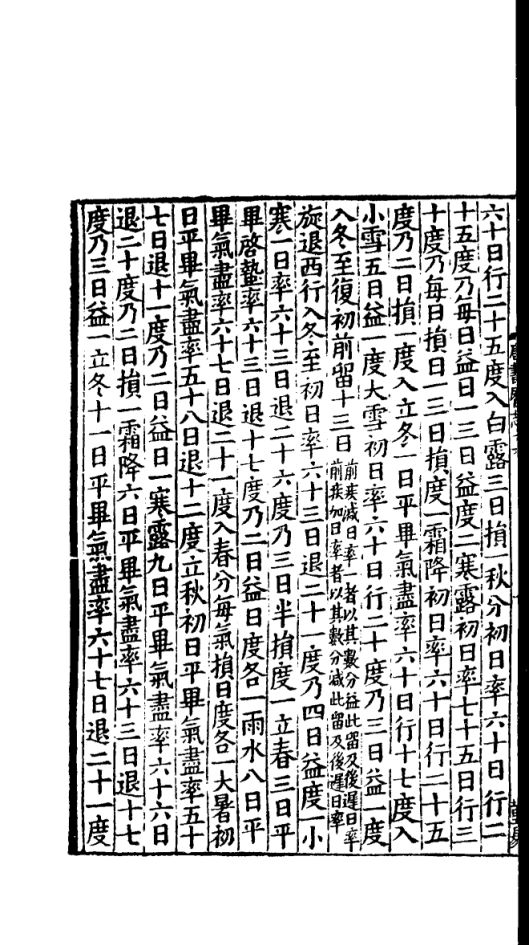 六十日行二十五度入白露三日損一秋分初日率六十日行二
十五度乃每日益日一三日益度二寒露初日率七十五日行三
十度乃每日損日一三日損度一霜降初日率六十日行二十五
度乃二日損一度入立冬一日平畢氣盡率六十日行十七度入
小雪五日益一度大雪初日率六十日行二十度乃三日益一度
入冬至復初前留十三日前疾減日率一者以其數分益此留及後遲日率
前疾加日率者以其數分減此留及後遲日率
旋退西行入冬至初日率六十三日退二十一度乃四日益度一小
寒一日率六十三日退二十六度乃三日半損度一立春三日平
畢啓蟄率六十三日退十七度乃二日益日度各一雨水八日平
畢氣盡率六十七日退二十一度入春分每氣損日度各一大暑初
日平畢氣盡率五十八日退十二度立秋初日平畢氣盡率五十
七日退十一度乃二日益日一寒露九日平畢氣盡率六十六日
退二十度乃二日損一霜降六日平畢氣盡率六十三日退十七
度乃三日益一立冬十一日平畢氣盡率六十七日退二十一度